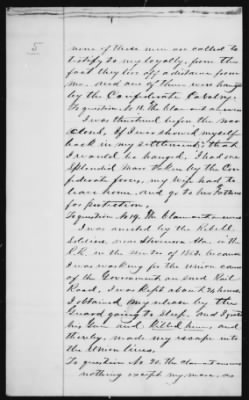 5
none of these men are called to
testify to my loyalty, from the
fact they live off a distance from
me. and one of them were hung
by the Confederate Rebels.
To question No 18. The Claimant answers
I was threatened before the war
closed. If I was should myself
back in my settlement; that
I would be hanged. I had one
Splendid Mare taken by the Con-
federate forces, my wife had to
leave home and go to her Fathers
for protection.
To question No 19. The Claimant answers
I was arrested by the Rebell
Soldiers, near Stevenson Ala. in the
R.R. in the winter of 1863 because
I was working for the Union cause
of the Government on said Rail
Road, I was kept about 24 hours
I obtained my release by the
Guard going to sleep, and I got
his Gun and Killed him, and
thereby, made my escape into
the Union lines.
To question No 20. the claimant answers
nothing except my mare, as